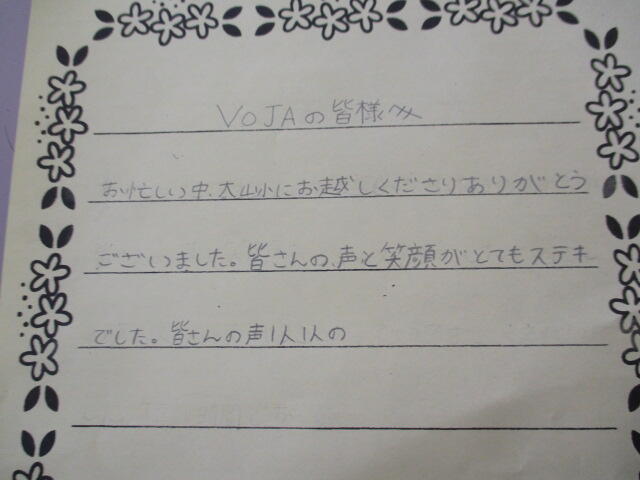 VOJAの皆様へ
お忙しい中、大山小にお越しくださりありがとう
ございました。皆さんの、声と笑顔がとてもステキ
でした。皆さんの声1人1人の